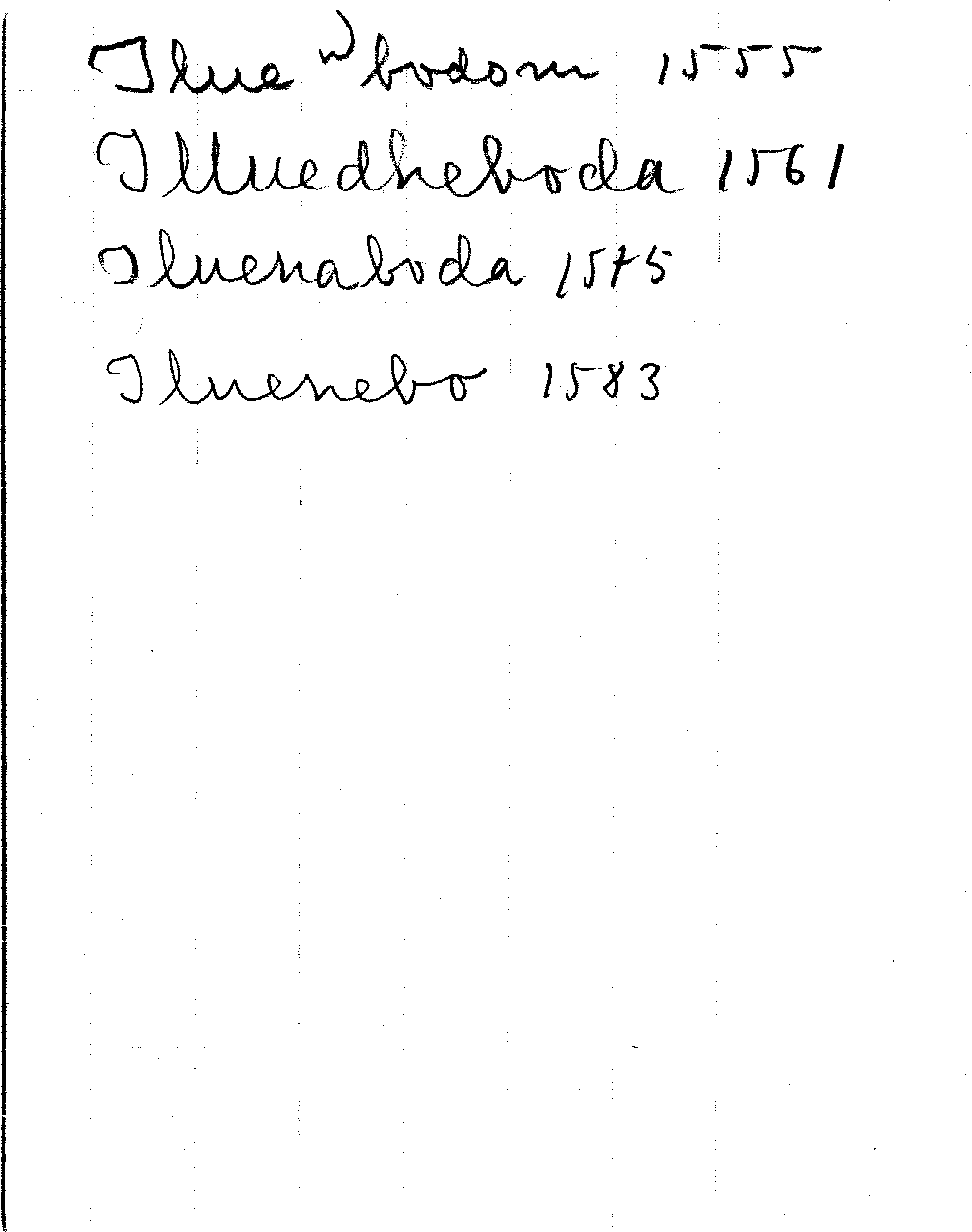 Ilue⁽ⁿ⁾bodom 1555
Illuedheboda 1561
Iluenaboda 1575
Iluenebo 1583